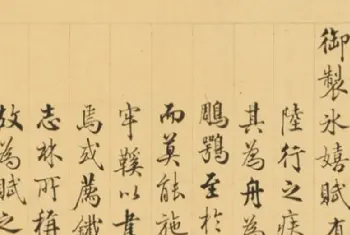 御製冰嬉賦有
陸行之疾
其為舟為
鵰鶚至於
而莫能施
牢鞵以韋
焉或薦鐵
志林所稱
故為賦之